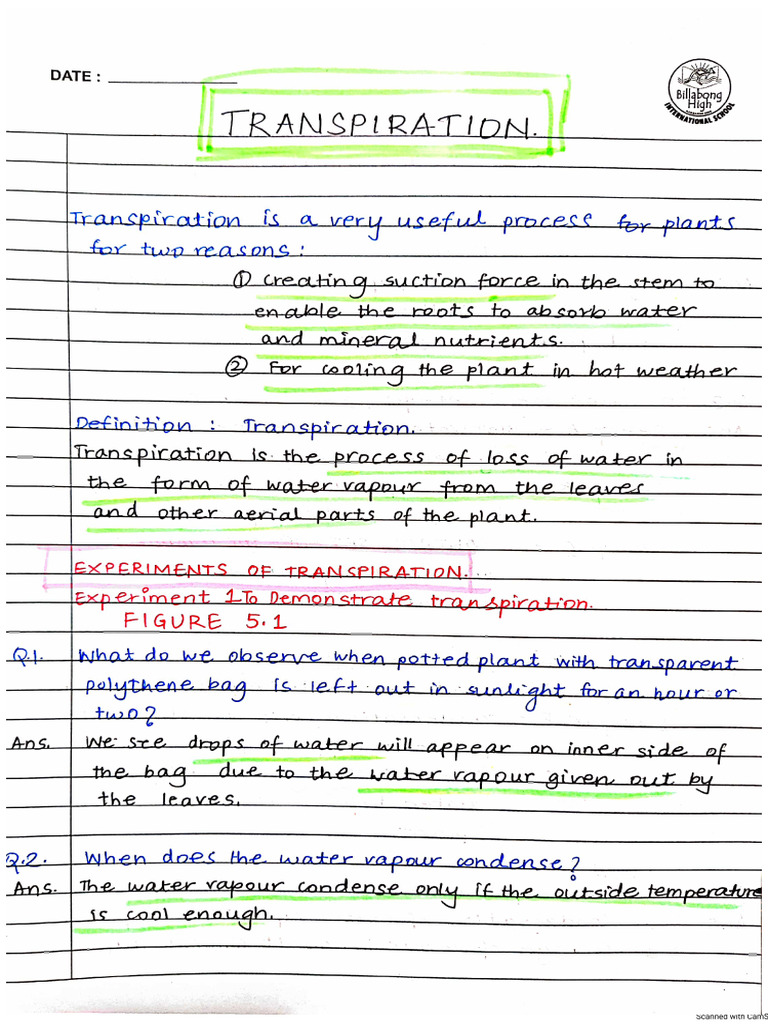 DATE :
Billabong
High
INTERNATIONAL SCHOOL
TRANSPIRATION.
Transpiration is a very useful process for plants
for two reasons :
① creating suction force in the stem to
enable the roots to absorb water
and mineral nutrients.
② For cooling the plant in hot weather
Definition : Transpiration.
Transpiration is the process of loss of water in
the form of water vapour from the leaves
and other aerial parts of the plant.
EXPERIMENTS OF TRANSPIRATION.
Experiment 1 To Demonstrate transpiration.
FIGURE 5.1
Q.1. What do we observe when potted plant with transparent
polythene bag is left out in sunlight for an hour or
two?
Ans. We see drops of water will appear on inner side of
the bag due to the water vapour given out by
the leaves.
Q.2. When does the water vapour condense?
Ans. The water vapour condense only if the outside temperature
is cool enough.
Scanned with CamS